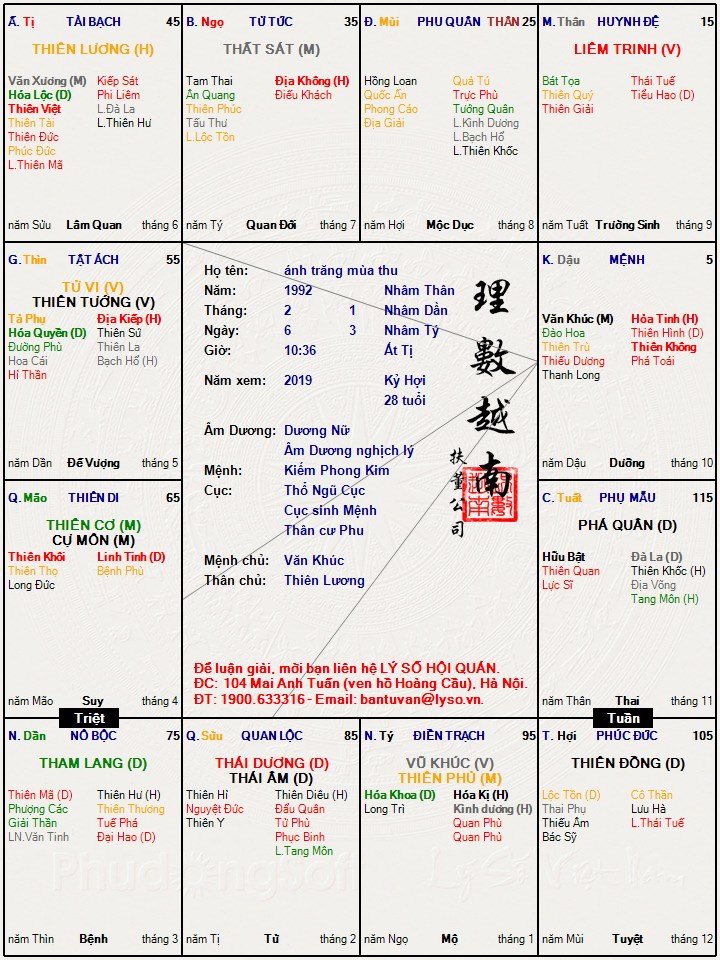 Ấ. Tị TÀI BẠCH 45
THIÊN LƯƠNG (H)
Văn Xương (M) Kiếp Sát
Hóa Lộc (D) Phi Liêm
Thiên Việt L.Đà La
Thiên Tài L.Thiên Hư
Thiên Đức
Phúc Đức
L.Thiên Mã
năm Sửu Lâm Quan tháng 6
B. Ngọ TỬ TỨC 35
THẤT SÁT (M)
Tam Thai Địa Không (H)
Ân Quang Điếu Khách
Thiên Phúc
Tấu Thư
L.Lộc Tồn
năm Tý Quan Đới tháng 7
Đ. Mùi PHU QUÂN THÂN 25
Hồng Loan Quả Tú
Quốc Ấn Trực Phù
Phong Cáo Tướng Quân
Địa Giải L.Kình Dương
L.Bạch Hổ
L.Thiên Khốc
năm Hợi Mộc Dục tháng 8
M. Thân HUYNH ĐỆ 15
LIÊM TRINH (V)
Bát Tọa Thái Tuế
Thiên Quý Tiểu Hao (D)
Thiên Giải
năm Tuất Trường Sinh tháng 9
G. Thìn TẬT ÁCH 55
TỬ VI (V)
THIÊN TƯỚNG (V)
Tả Phụ Địa Kiếp (H)
Hóa Quyền (D) Thiên Sứ
Đường Phù Thiên La
Hoa Cái Bạch Hổ (H)
Hỉ Thần
năm Dần Đế Vượng tháng 5
Họ tên: ánh trăng mùa thu
Năm: 1992 Nhâm Thân
Tháng: 2 1 Nhâm Dần
Ngày: 6 3 Nhâm Tý
Giờ: 10:36 Ất Tị
Năm xem: 2019 Kỷ Hợi
28 tuổi
Âm Dương: Dương Nữ
Âm Dương nghịch lý
Mệnh: Kiếm Phong Kim
Cục: Thổ Ngũ Cục
Cục sinh Mệnh
Thân cư Phu
Mệnh chủ: Văn Khúc
Thân chủ: Thiên Lương
理數越南
扶董公司
Để luận giải, mời bạn liên hệ LÝ SỐ HỘI QUÁN.
ĐC: 104 Mai Anh Tuấn (ven hồ Hoàng Cầu), Hà Nội.
ĐT: 1900.633316 - Email: bantuvan@lyso.vn.
K. Dậu MỆNH 5
Văn Khúc (M) Hỏa Tinh (H)
Đào Hoa Thiên Hình (D)
Thiên Trù Thiên Không
Thiếu Dương Phá Toái
Thanh Long
năm Dậu Dưỡng tháng 10
Q. Mão THIÊN DI 65
THIÊN CƠ (M)
CỰ MÔN (M)
Thiên Khôi Linh Tinh (D)
Thiên Thọ Bệnh Phù
Long Đức
năm Mão Suy tháng 4
C. Tuất PHỤ MẪU 115
PHÁ QUÂN (D)
Hữu Bật Đà La (D)
Thiên Quan Thiên Khốc (H)
Lực Sĩ Địa Võng
Tang Môn (H)
năm Thân Thai tháng 11
Triệt
Tuần
N. Dần NÔ BỘC 75
THAM LANG (D)
Thiên Mã (D) Thiên Hư (H)
Phượng Các Thiên Thương
Giải Thần Tuế Phá
LN.Văn Tinh Đại Hao (D)
năm Thìn Bệnh tháng 3
Q. Sửu QUAN LỘC 85
THÁI DƯƠNG (D)
THÁI ÂM (D)
Thiên Hỉ Thiên Diêu (H)
Nguyệt Đức Đẩu Quân
Thiên Y Tử Phù
Phục Binh
L.Tang Môn
năm Tị Tử tháng 2
N. Tý ĐIỀN TRẠCH 95
VŨ KHÚC (V)
THIÊN PHỦ (M)
Hóa Khoa (D) Hóa Kị (H)
Long Trì Kình dương (H)
Quan Phủ
Quan Phù
năm Ngọ Mộ tháng 1
T. Hợi PHÚC ĐỨC 105
THIÊN ĐỒNG (D)
Lộc Tồn (D) Cô Thần
Thai Phụ Lưu Hà
Thiếu Âm L.Thái Tuế
Bác Sỹ
năm Mùi Tuyệt tháng 12
PhudongSoft
Lý Số Việt Nam